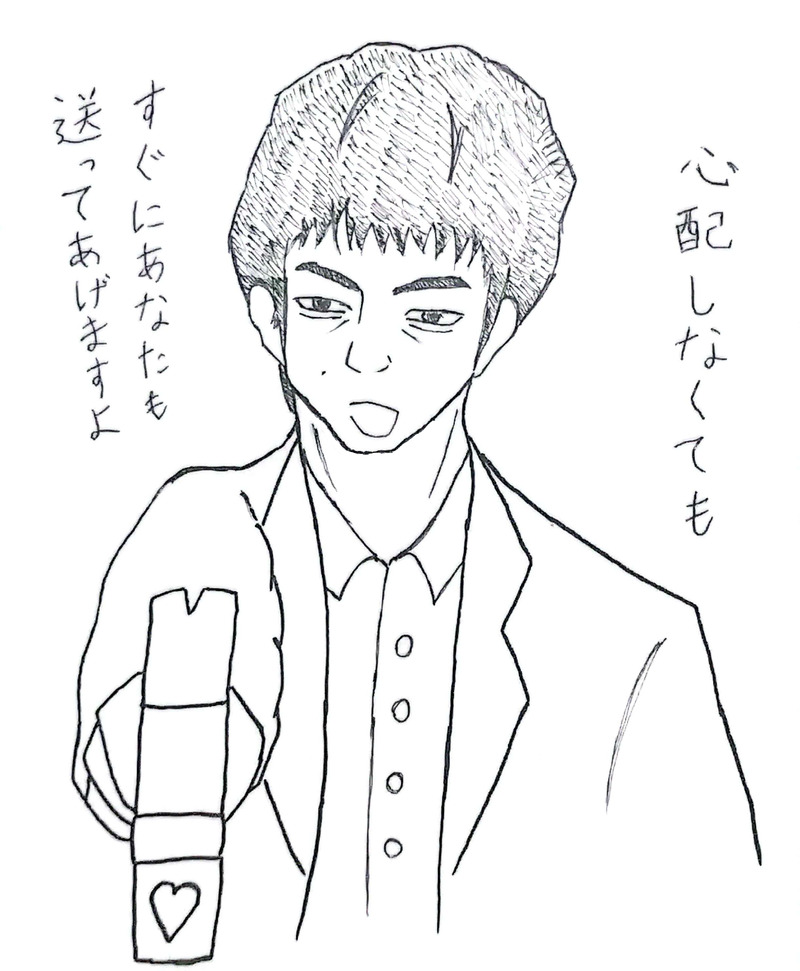 心配しなくても
すぐにあなたも
送ってあげますよ